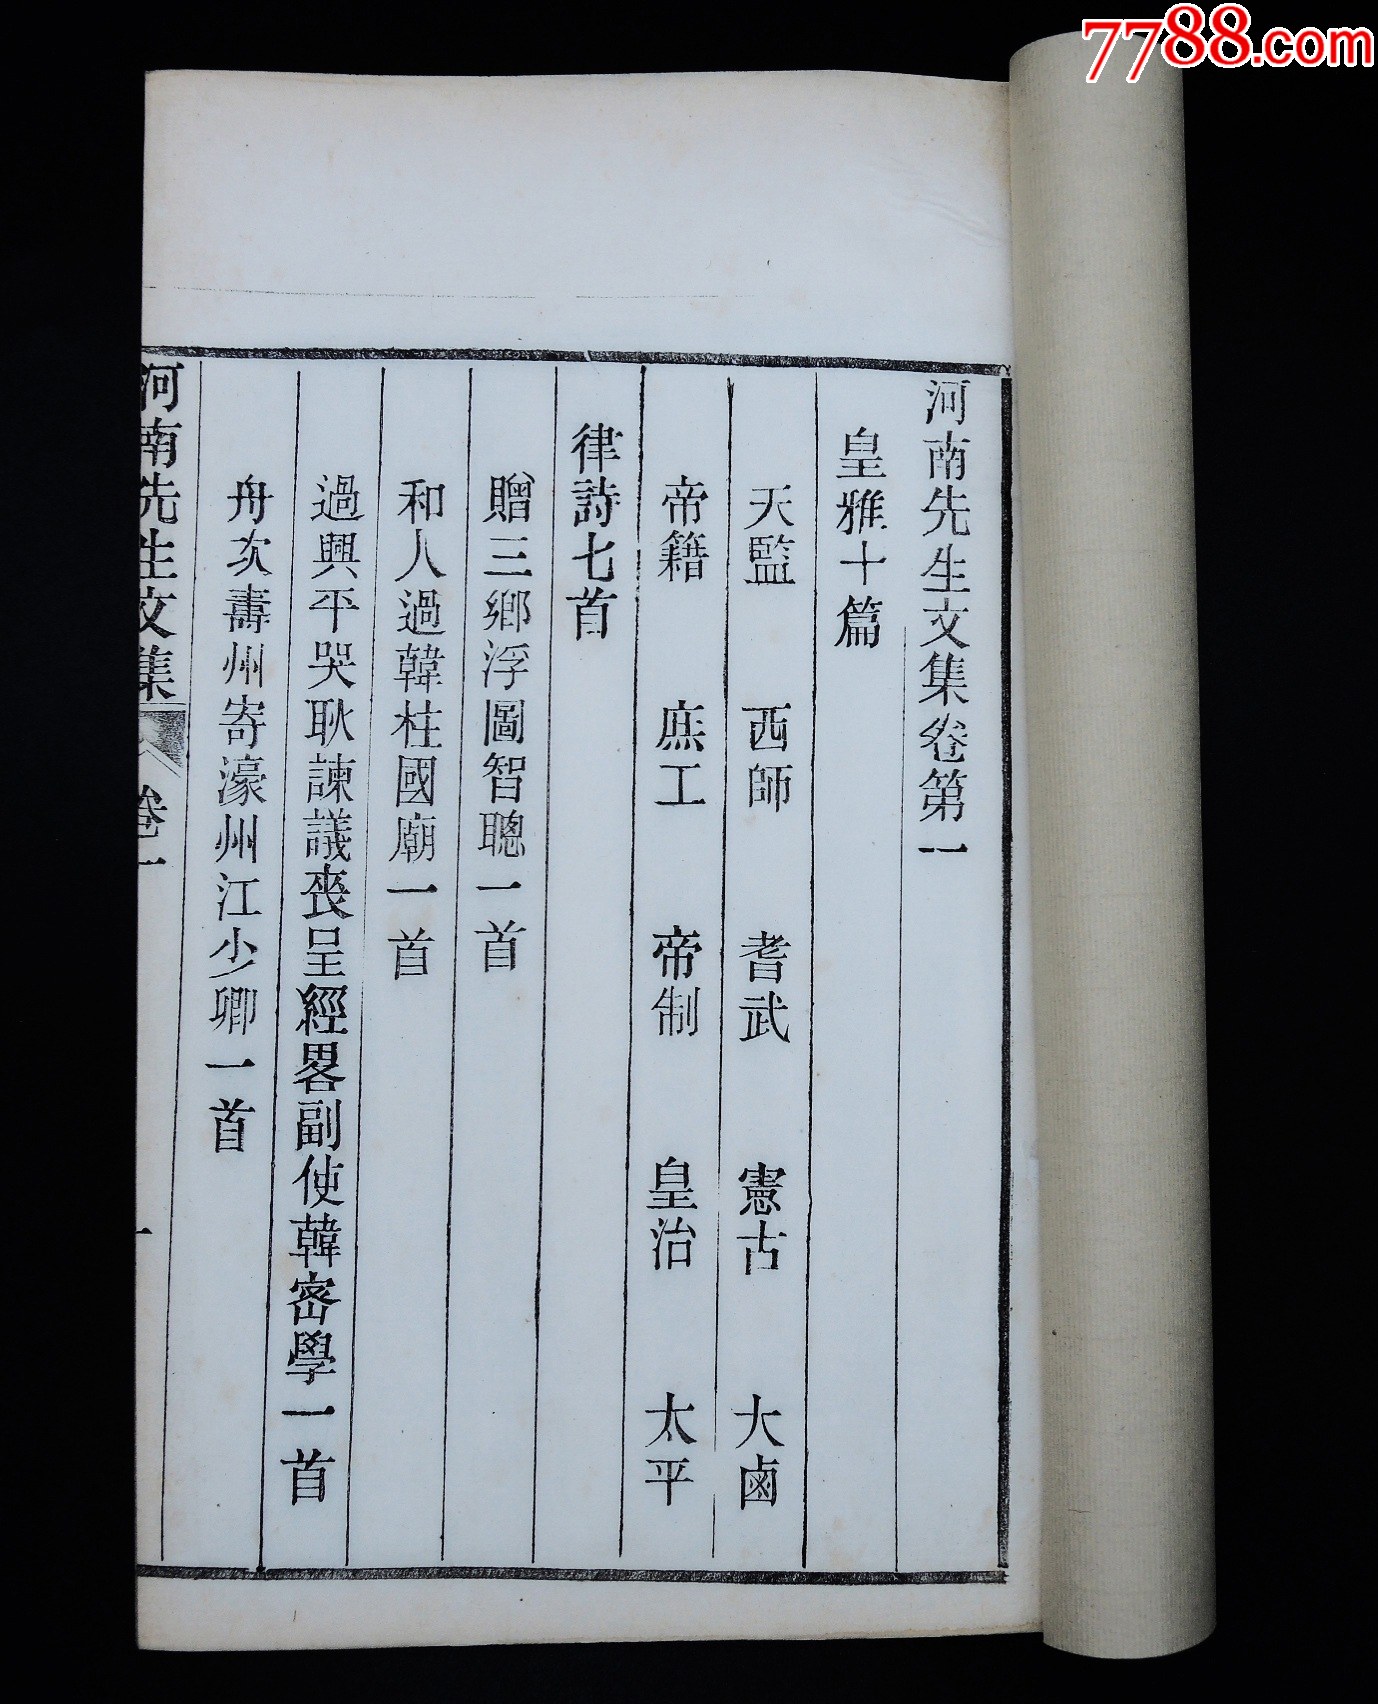 7788.com
河南先生文集卷第一
皇雅十篇
天監 西師 耆武 憲古 大鹵
帝籍 庶工 帝制 皇治 太平
律詩七首
贈三鄉浮圖智聰一首
和人過韓柱國廟一首
過興平哭耿諫議喪呈經畧副使韓密學一首
舟次壽州寄濠州江少卿一首
河南先生文集 卷一 一